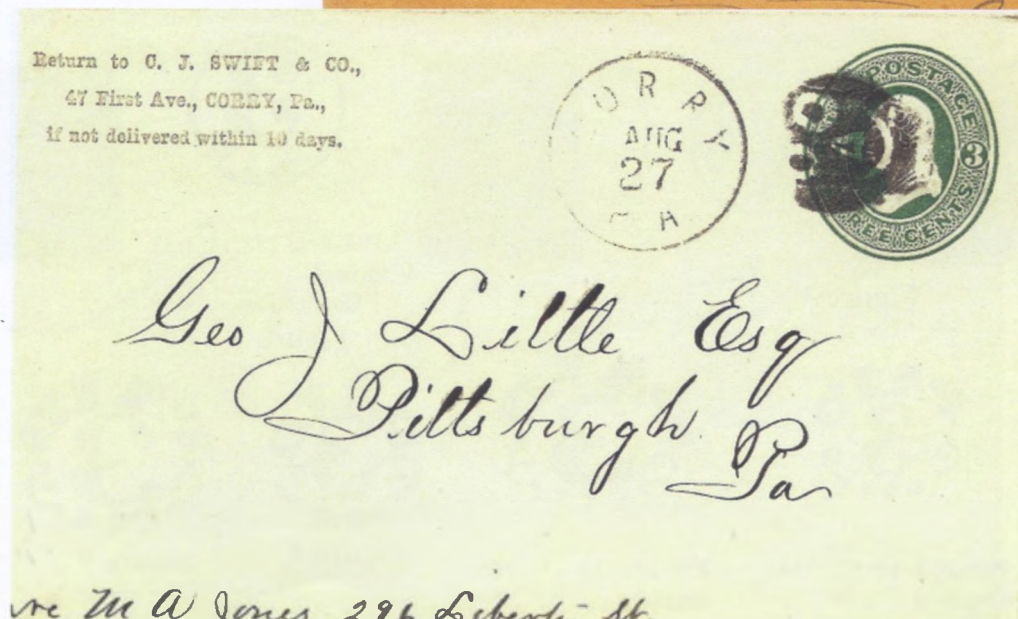 Return to C. J. SWIFT & CO.,
47 First Ave., CORRY, Pa.,
if not delivered within 10 days.
CORRY
AUG
27
PA
POSTAGE
3
THREE CENTS
Geo J Little Esq
Pittsburgh
Pa
M A Jones 296 Liberty St